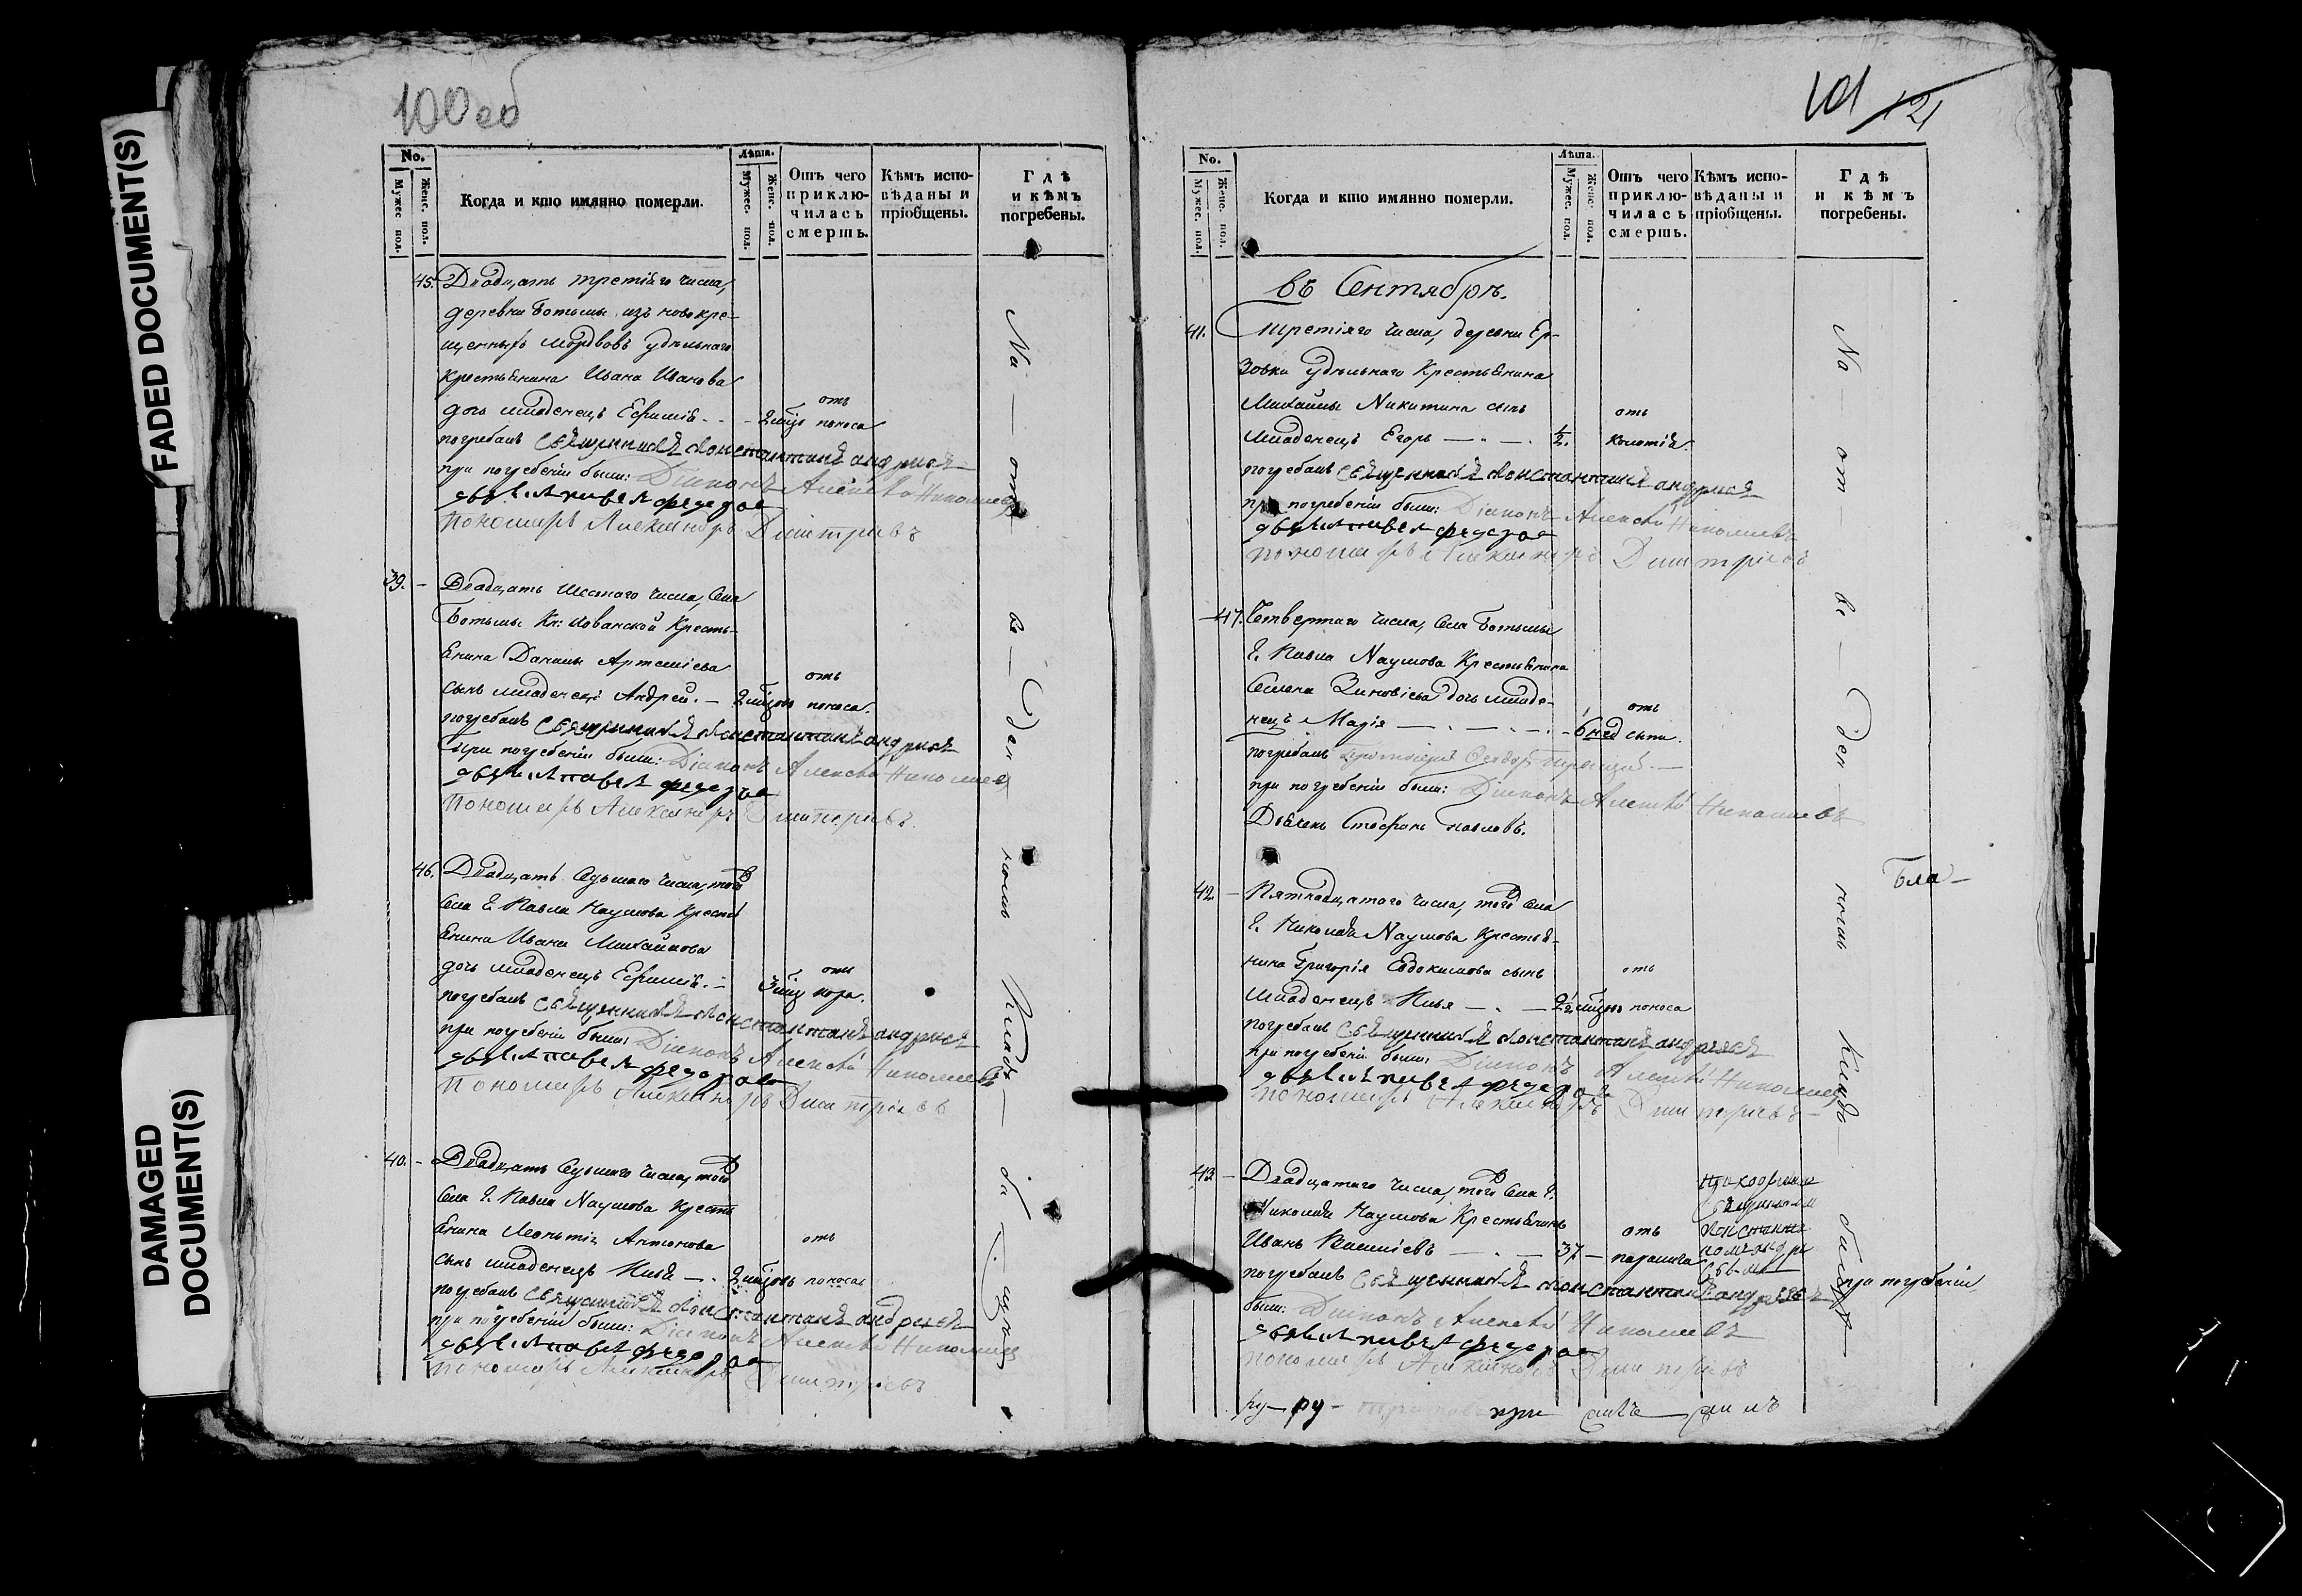 FADED DOCUMENT(S)
DAMAGED DOCUMENT(S)
100 об
No.
Мужес. пол.
Женс. пол.
Когда и кто имянно померли.
Лѣта.
Мужес. пол.
Женс. пол.
Отъ чего приклю-
чилась смерть.
Кѣмъ испо-
вѣданы и
пріобщены.
Гдѣ
и кѣмъ
погребены.
45. Двадцать третіяго числа,
деревни Ботьмы изъ новокре-
щенныхъ Мордвовъ удѣльнаго
крестьянина Ивана Иванова
дочь младенецъ Ефимія - - 2 мцъ отъ поноса
погребалъ Священникъ Константинъ Андреевъ
при погребеніи были: Діаконъ Алексѣй Николаевъ
дьячекъ Павелъ Федоров
Пономарь Александръ Дмитріевъ
39. - Двадцать шестаго числа, села
Ботьмы Кн: Хованской Кресть-
янина Данилы Артеміева
сынъ младенецъ Андрей. - 2 мцовъ отъ поноса.
погребалъ Священникъ Константинъ Андреевъ
При погребеніи были: Діаконъ Алексѣй Николаевъ
дьячекъ Павелъ Федоров
Пономарь Александръ Дмитріевъ.
46. Двадцать седьмаго числа, тогожъ
села Г. Павла Наумова Кресть
янина Ивана Михайлова
дочь младенецъ Ефимія. - 3 мцъ отъ кори.
погребалъ Священникъ Константинъ Андреевъ
при погребеніи были: Діаконъ Алексѣй Николаевъ
дьячекъ Павелъ Федоров
Пономарь Александръ Дмитріевъ
40. - Двадцать седьмаго числа, тогожъ
села Г. Павла Наумова Кресть
янина Леонтія Антонова
сынъ младенецъ Илья - . 2 мцовъ отъ поноса
погребалъ Священникъ Константинъ Андреевъ
при погребеніи были: Діаконъ Алексѣй Николаевъ
дьячекъ Павелъ Федоров
пономарь Александръ Дмитріевъ
На - отве - ден - номъ кладб -
101
121
No.
Мужес. пол.
Женс. пол.
Когда и кто имянно померли.
Лѣта.
Мужес. пол.
Женс. пол.
Отъ чего приклю-
чилась смерть.
Кѣмъ испо-
вѣданы и
пріобщены.
Гдѣ
и кѣмъ
погребены.
въ Сентябрѣ.
41. Третіяго числа, деревни Ер-
зовки удѣльнаго Крестьянина
Михайлы Никитина сынъ
младенецъ Егоръ - . - . 1/2. отъ
погребалъ Священникъ Константинъ Андреевъ
при погребеніи были: Діаконъ Алексѣй Николаевъ
дьячекъ Павелъ Федоров
пономарь Александръ Дмитріевъ
47. Четвертаго числа, села Ботьмы
Г. Павла Наумова Крестьянина
Семена Зиновіева дочь младе-
нецъ Марія - . - . - . - 6 нед отъ сыпи.
погребалъ
при погребеніи были: Діаконъ Алексѣй Николаевъ
Дьячекъ Стефанъ Павловъ.
42. - Пятнадцатаго числа, тогожъ села
Г. Николая Наумова Крестья-
нина Григорія Евдокимова сынъ
младенецъ Илья - . - 2 1/2 мцовъ отъ поноса
погребалъ Священникъ Константинъ Андреевъ
при погребеніи были: Діаконъ Алексѣй Николаевъ
дьячекъ Павелъ Федоров
пономарь Александръ Дмитріевъ
43 - Двадцатаго числа, тогожъ села Г.
Николая Наумова Крестьянинъ
Иванъ Василіевъ - . - 37. - отъ паралича
Священником
Константи
номъ Андре
евымъ
погребалъ Священникъ Константинъ Андреевъ при погребеніи
были: Діаконъ Алексѣй Николаевъ
дьячекъ Павелъ Федоров
пономарь Александръ Дмитріевъ
На - от - ве - ден - номъ кладб -
Бла -